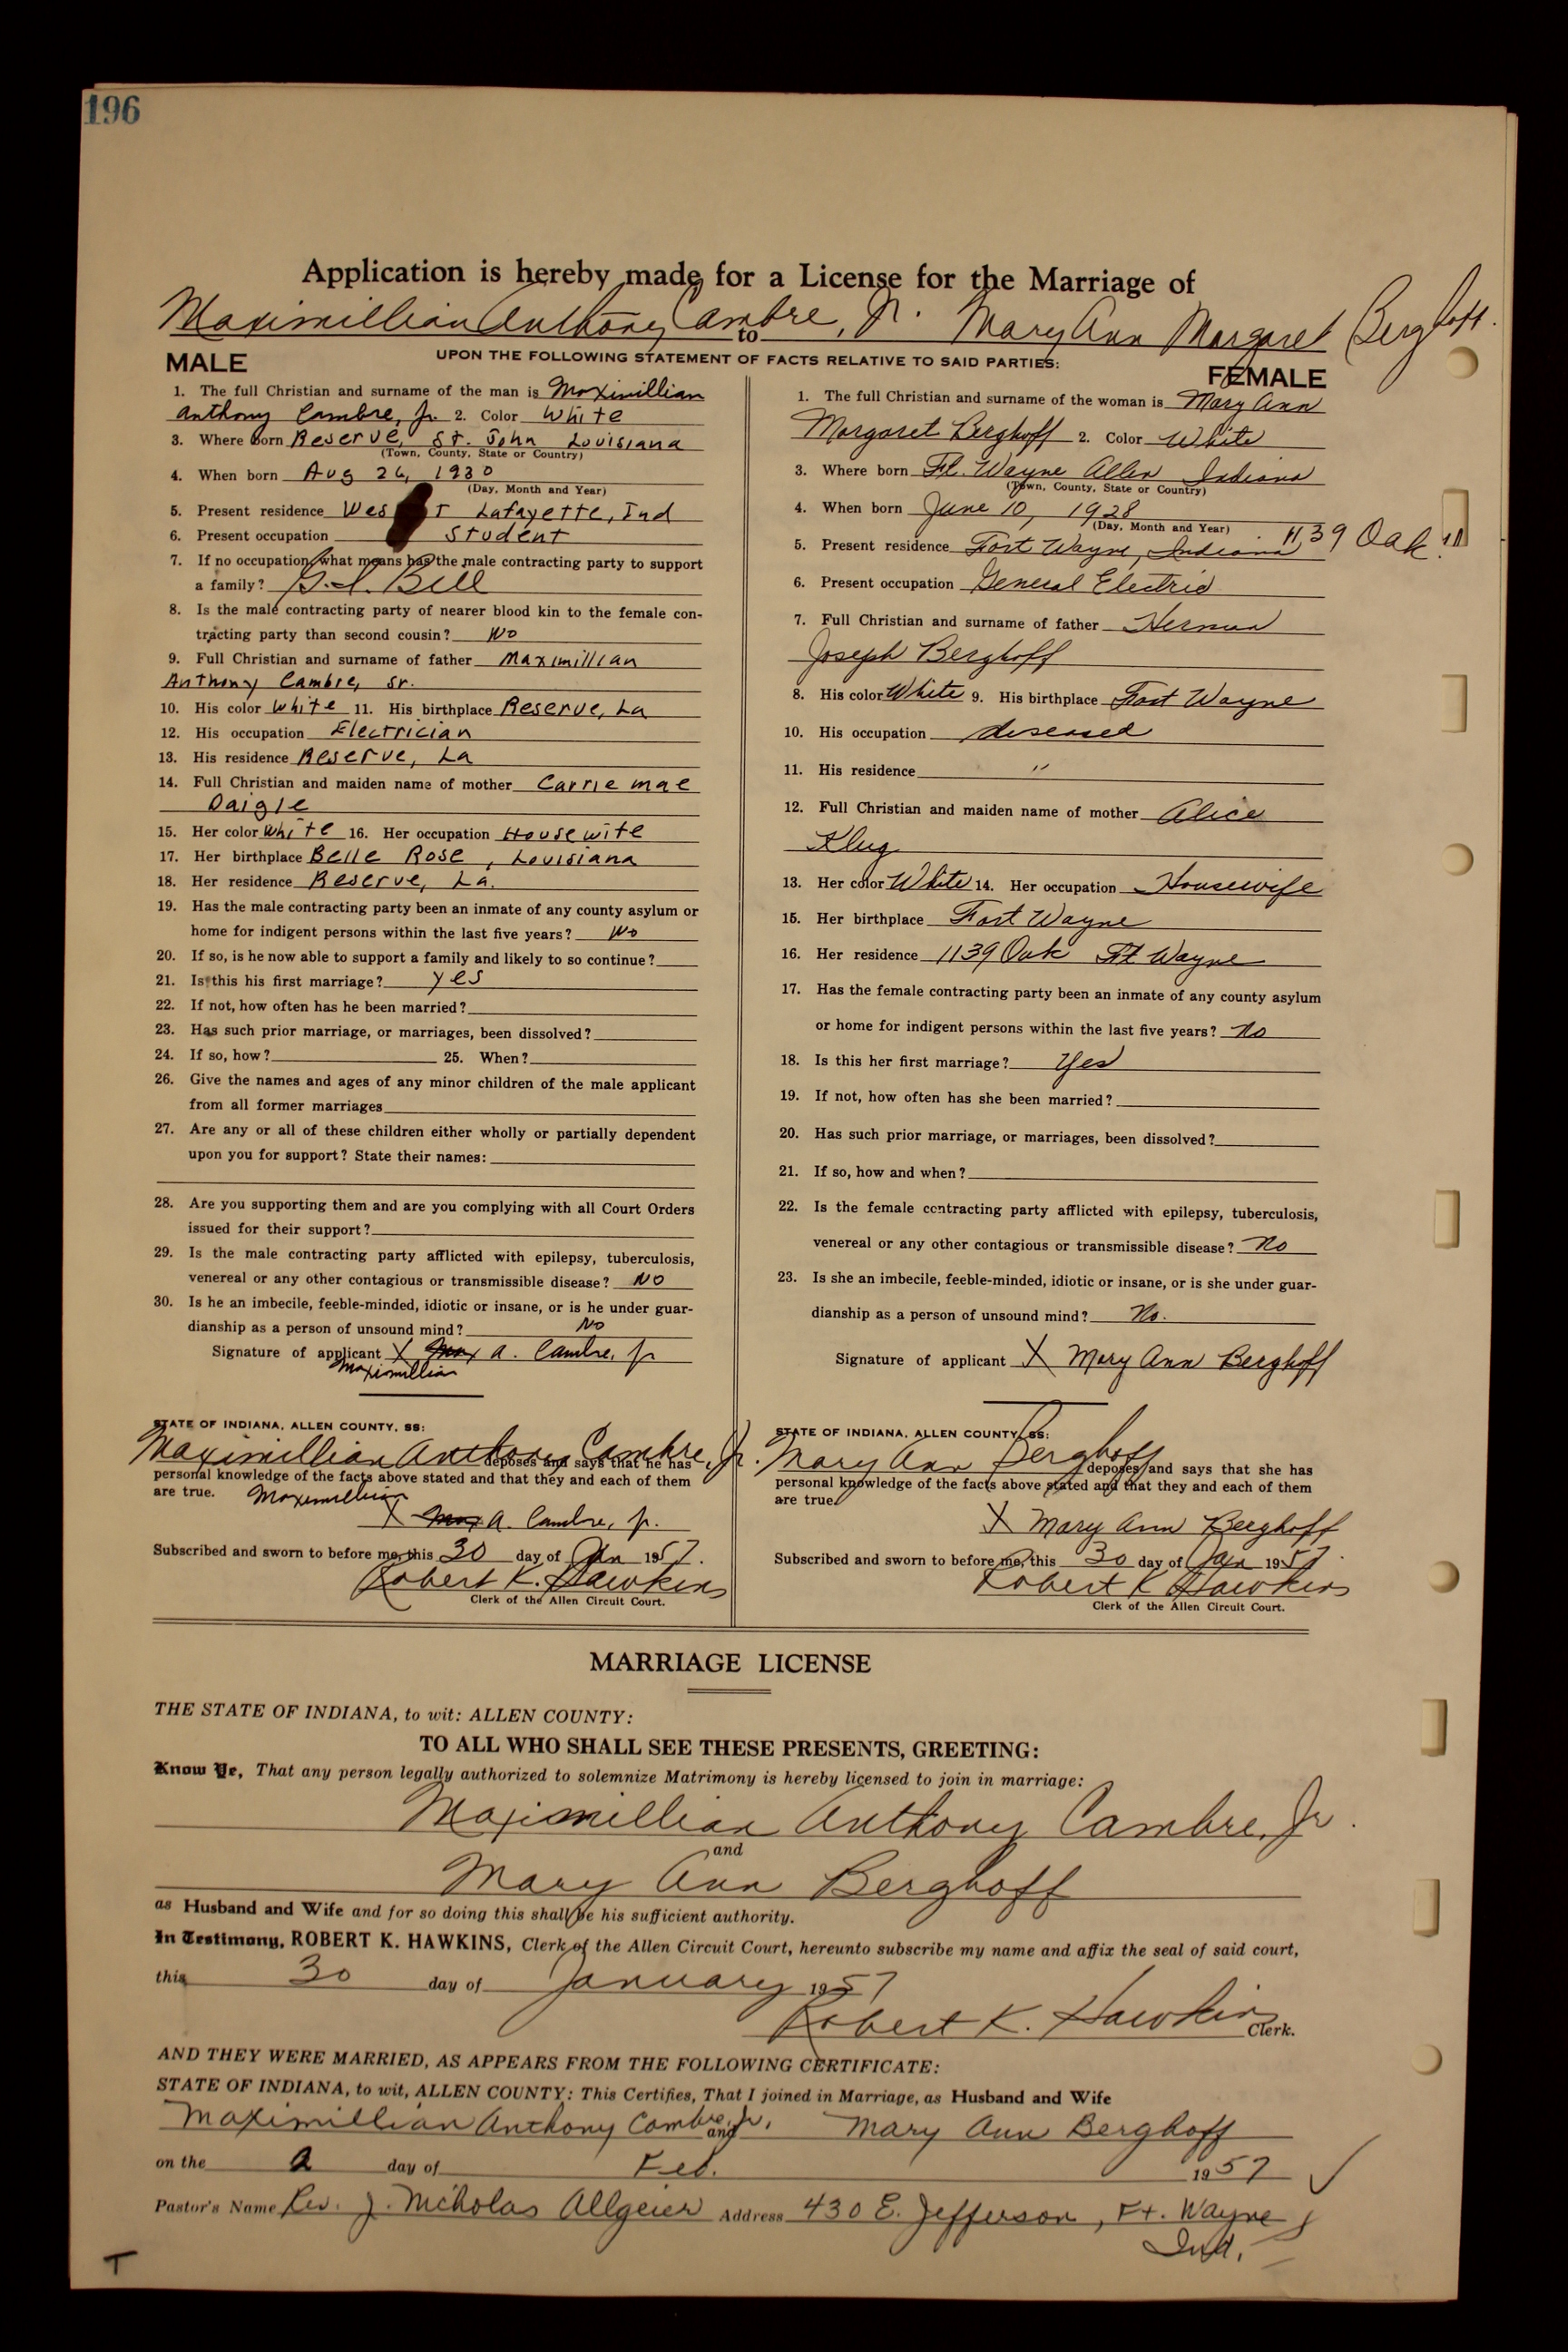 196
Application is hereby made for a License for the Marriage of
Maximillian Anthony Cambre, Jr. to Mary Ann Margaret Berghoff.
UPON THE FOLLOWING STATEMENT OF FACTS RELATIVE TO SAID PARTIES:
MALE
1. The full Christian and surname of the man is Maximillian
Anthony Cambre, Jr. 2. Color White
3. Where born Reserve, St. John Louisiana
(Town, County, State or Country)
4. When born Aug 26, 1930
(Day, Month and Year)
5. Present residence West Lafayette, Ind
6. Present occupation Student
7. If no occupation, what means has the male contracting party to support
a family? G.I. Bill
8. Is the male contracting party of nearer blood kin to the female con-
tracting party than second cousin? No
9. Full Christian and surname of father Maximillian
Anthony Cambre, Sr.
10. His color White 11. His birthplace Reserve, La
12. His occupation Electrician
13. His residence Reserve, La
14. Full Christian and maiden name of mother Carrie Mae
Daigle
15. Her color White 16. Her occupation Housewife
17. Her birthplace Belle Rose, Louisiana
18. Her residence Reserve, La.
19. Has the male contracting party been an inmate of any county asylum or
home for indigent persons within the last five years? No
20. If so, is he now able to support a family and likely to so continue?
21. Is this his first marriage? Yes
22. If not, how often has he been married?
23. Has such prior marriage, or marriages, been dissolved?
24. If so, how? 25. When?
26. Give the names and ages of any minor children of the male applicant
from all former marriages
27. Are any or all of these children either wholly or partially dependent
upon you for support? State their names:
28. Are you supporting them and are you complying with all Court Orders
issued for their support?
29. Is the male contracting party afflicted with epilepsy, tuberculosis,
venereal or any other contagious or transmissible disease? No
30. Is he an imbecile, feeble-minded, idiotic or insane, or is he under guar-
dianship as a person of unsound mind? No
Signature of applicant X Max A. Cambre, Jr
Maximillian
STATE OF INDIANA, ALLEN COUNTY, SS:
Maximillian Anthony Cambre, Jr. deposes and says that he has
personal knowledge of the facts above stated and that they and each of them
are true. Maximillian
X Max A. Cambre, Jr.
Subscribed and sworn to before me, this 30 day of Jan 1957.
Robert K. Hawkins
Clerk of the Allen Circuit Court.
FEMALE
1. The full Christian and surname of the woman is Mary Ann
Margaret Berghoff 2. Color White
3. Where born Ft. Wayne Allen Indiana
(Town, County, State or Country)
4. When born June 10, 1928
(Day, Month and Year)
5. Present residence Fort Wayne, Indiana 1139 Oak
6. Present occupation General Electric
7. Full Christian and surname of father Herman
Joseph Berghoff
8. His color White 9. His birthplace Fort Wayne
10. His occupation deseased
11. His residence "
12. Full Christian and maiden name of mother Alice
Klug
13. Her color White 14. Her occupation Housewife
15. Her birthplace Fort Wayne
16. Her residence 1139 Oak Ft Wayne
17. Has the female contracting party been an inmate of any county asylum
or home for indigent persons within the last five years? No
18. Is this her first marriage? Yes
19. If not, how often has she been married?
20. Has such prior marriage, or marriages, been dissolved?
21. If so, how and when?
22. Is the female contracting party afflicted with epilepsy, tuberculosis,
venereal or any other contagious or transmissible disease? No
23. Is she an imbecile, feeble-minded, idiotic or insane, or is she under guar-
dianship as a person of unsound mind? No.
Signature of applicant X Mary Ann Berghoff
STATE OF INDIANA, ALLEN COUNTY, SS:
Mary Ann Berghoff deposes and says that she has
personal knowledge of the facts above stated and that they and each of them
are true.
X Mary Ann Berghoff
Subscribed and sworn to before me, this 30 day of Jan 1957.
Robert K Hawkins
Clerk of the Allen Circuit Court.
MARRIAGE LICENSE
THE STATE OF INDIANA, to wit: ALLEN COUNTY:
TO ALL WHO SHALL SEE THESE PRESENTS, GREETING:
Know Ye, That any person legally authorized to solemnize Matrimony is hereby licensed to join in marriage:
Maximillian Anthony Cambre, Jr.
and
Mary Ann Berghoff
as Husband and Wife and for so doing this shall be his sufficient authority.
In Testimony, ROBERT K. HAWKINS, Clerk of the Allen Circuit Court, hereunto subscribe my name and affix the seal of said court,
this 30 day of January 1957
Robert K. Hawkins Clerk.
AND THEY WERE MARRIED, AS APPEARS FROM THE FOLLOWING CERTIFICATE:
STATE OF INDIANA, to wit, ALLEN COUNTY: This Certifies, That I joined in Marriage, as Husband and Wife
Maximillian Anthony Cambre, Jr. and Mary Ann Berghoff
on the 2 day of Feb. 1957
Pastor's Name Rev. J. Nicholas Allgeier Address 430 E. Jefferson, Ft. Wayne
Ind.
T